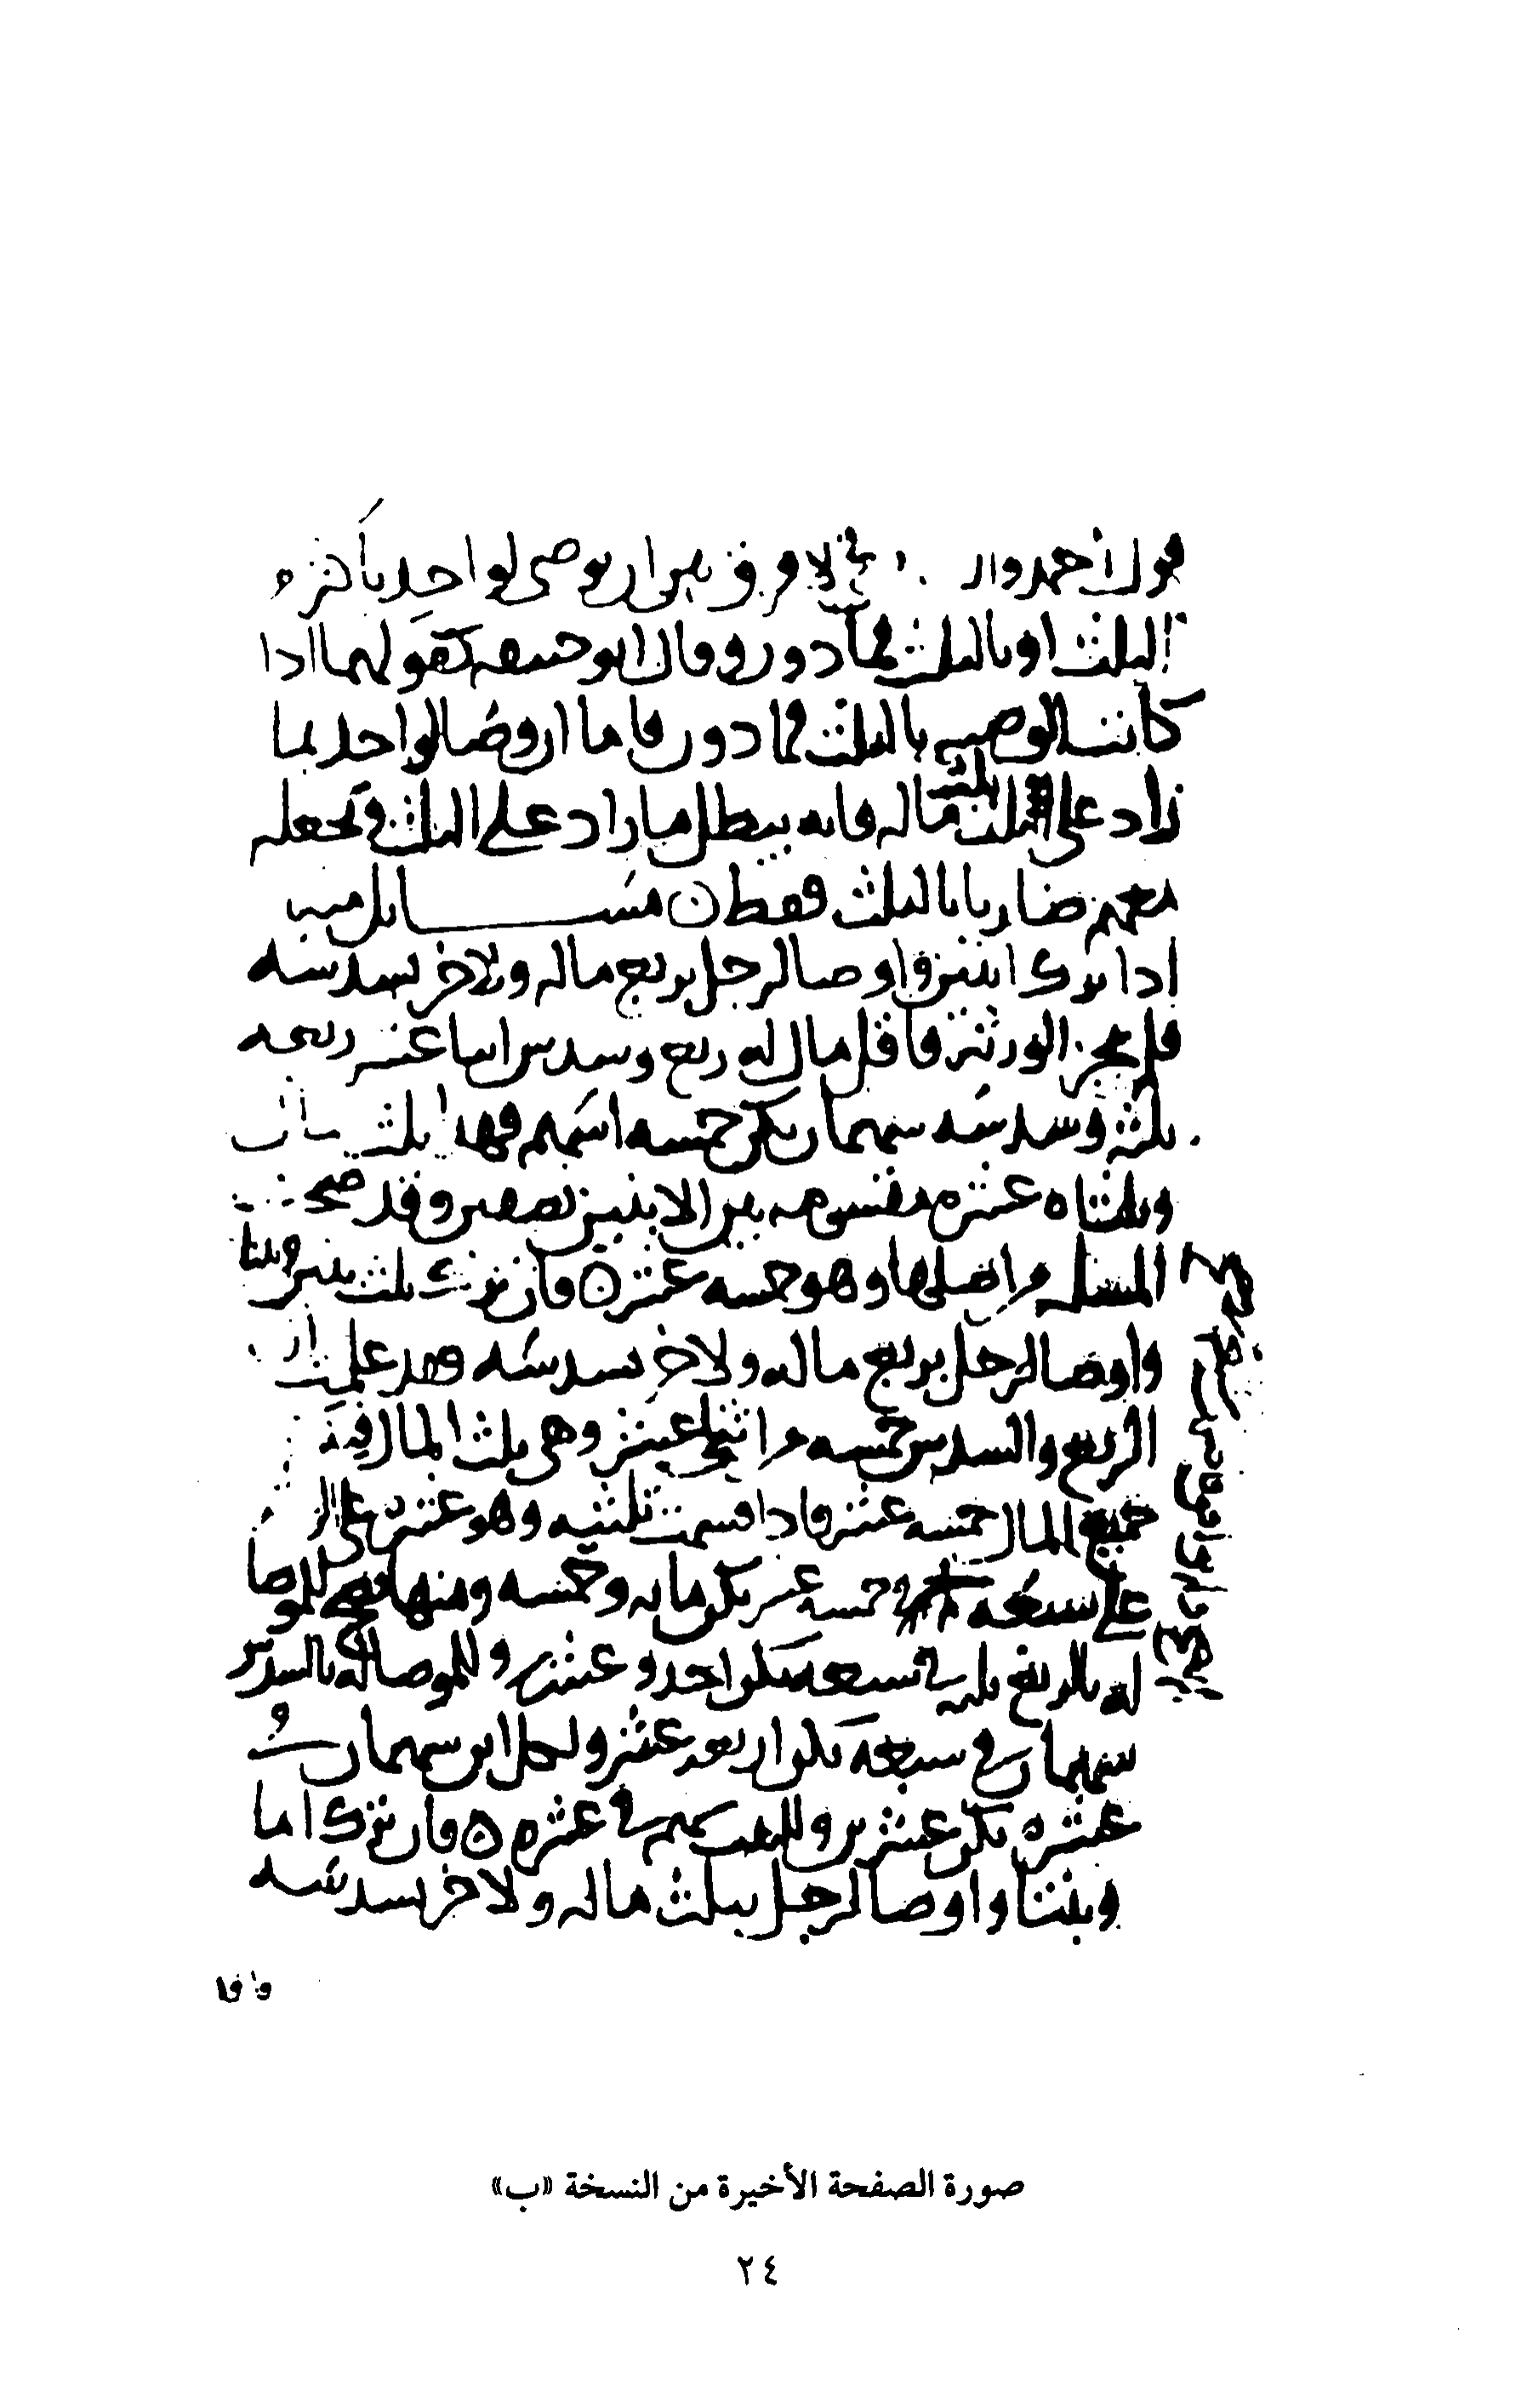 قول احمد لا فرق بين ان يوصى لواحد باكثر
الثلث او بالثلث فما دون وقال ابو حنيفه كقولهما اذا
كانت الوصيه بالثلث فما دون فاما ان وصا لواحد بما
زاد على ثلث ماله فانه يبطل ما زاد على الثلث ويجعله
معهم ضاربا بالثلث فقط ن مسايل
اذا ترك ابنين واوصا لرجل بربع ماله ولاخر بسدسه
فلم يجز الورثة فاقل مال له ربع وسدس اثنا عشر ربعه
ثلثه وسدسه سهمان يكن خمسه اسهم فهذا ثلث
وثلثاه عشره مقسومه بين الابنين نصفين وقد صحت
المسله من اصلها وهو خمسه عشر ن فان ترك ثلث بنين
واوصا لرجل بربع ماله ولاخر بسدسه فقد علمت ان
الربع والسدس خمسه من اثنى عشر وهي ثلث المال
جميع المال خمسه عشر فاذا قسمت ثلثيه وهو عشره على
على سبعه خمسه عشر يكن مايه وخمسه ومنها تصح للموصا
له بالربع ثلثه في سبعه يكن احد وعشرين وللموصا له بالسدس
سهمان في سبعه يكن اربعه عشر ولكل ابن سهمان في
عشره يكن عشرين وللبنت سهم في عشره ن فان ترك اما
وبنتا واوصا لرجل بثلث ماله ولاخر بسدسه
صورة الصفحة الأخيرة من النسخة «ب»
٢٤